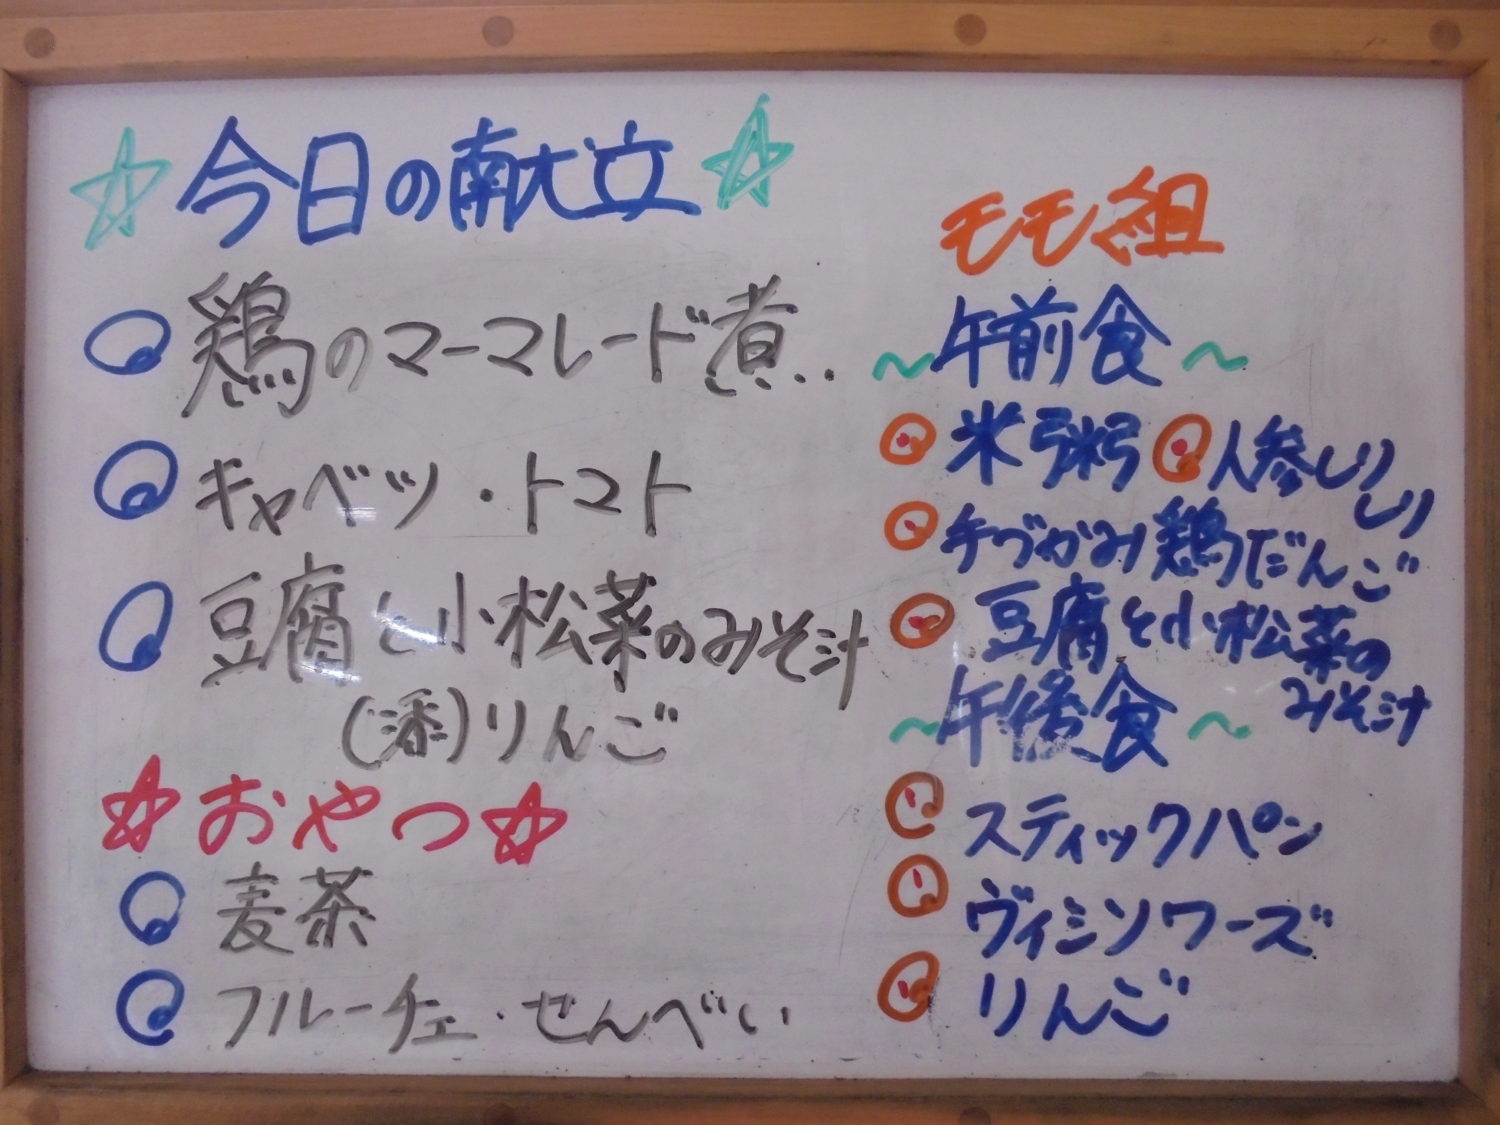 ☆今日の献立☆
鶏のマーマレード煮
キャベツ・トマト
豆腐と小松菜のみそ汁
(添)りんご
☆おやつ☆
麦茶
フルーチェ・せんべい
モモ組
～午前食～
米粥 人参しり
しり
手づかみ鶏だんご
豆腐と小松菜の
みそ汁
～午後食～
スティックパン
ヴィシソワーズ
りんご